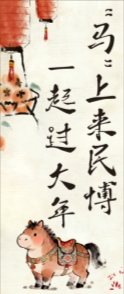 “马”上来民博
一起过大年